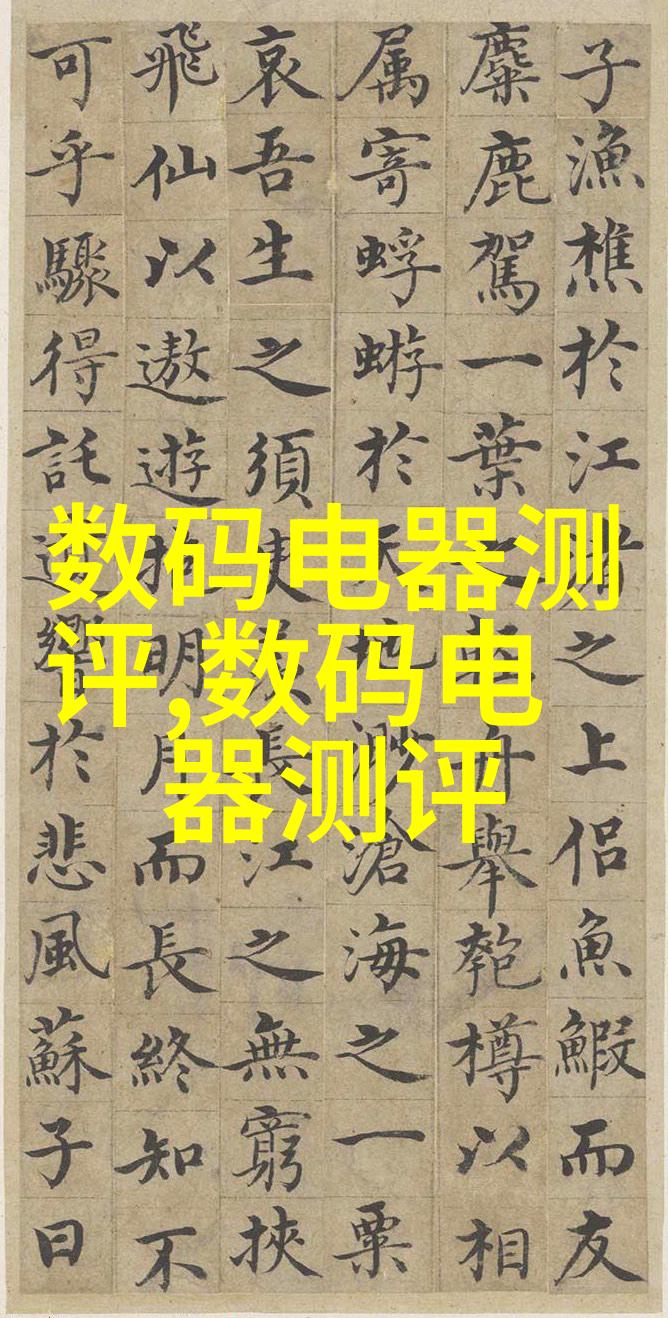 子漁樵於江渚之上侶魚鰕而友
麋鹿駕一葉之輕舟舉匏樽以相
属寄蜉蝣於天地渺滄海之一粟
哀吾生之須臾羨長江之無窮挾
飛仙以遨遊抱明月而長終知不
可乎驟得託遺響於悲風蘇子曰
数码电器测
评,数码电
器测评